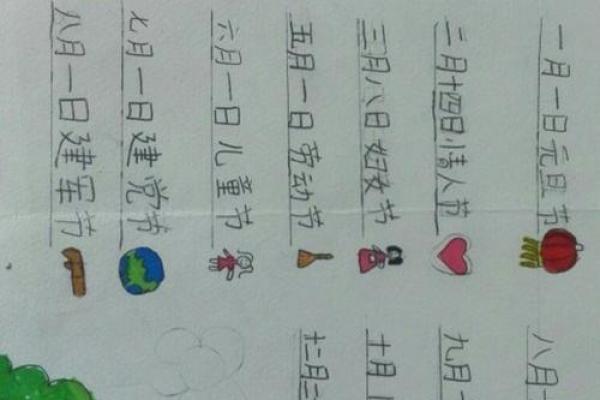 一月一日元旦节
二月十四日情人节
三月八日妇女节
五月一日劳动节
六月一日儿童节
七月一日建党节
八月一日建军节
八月
九月
十月
十二月